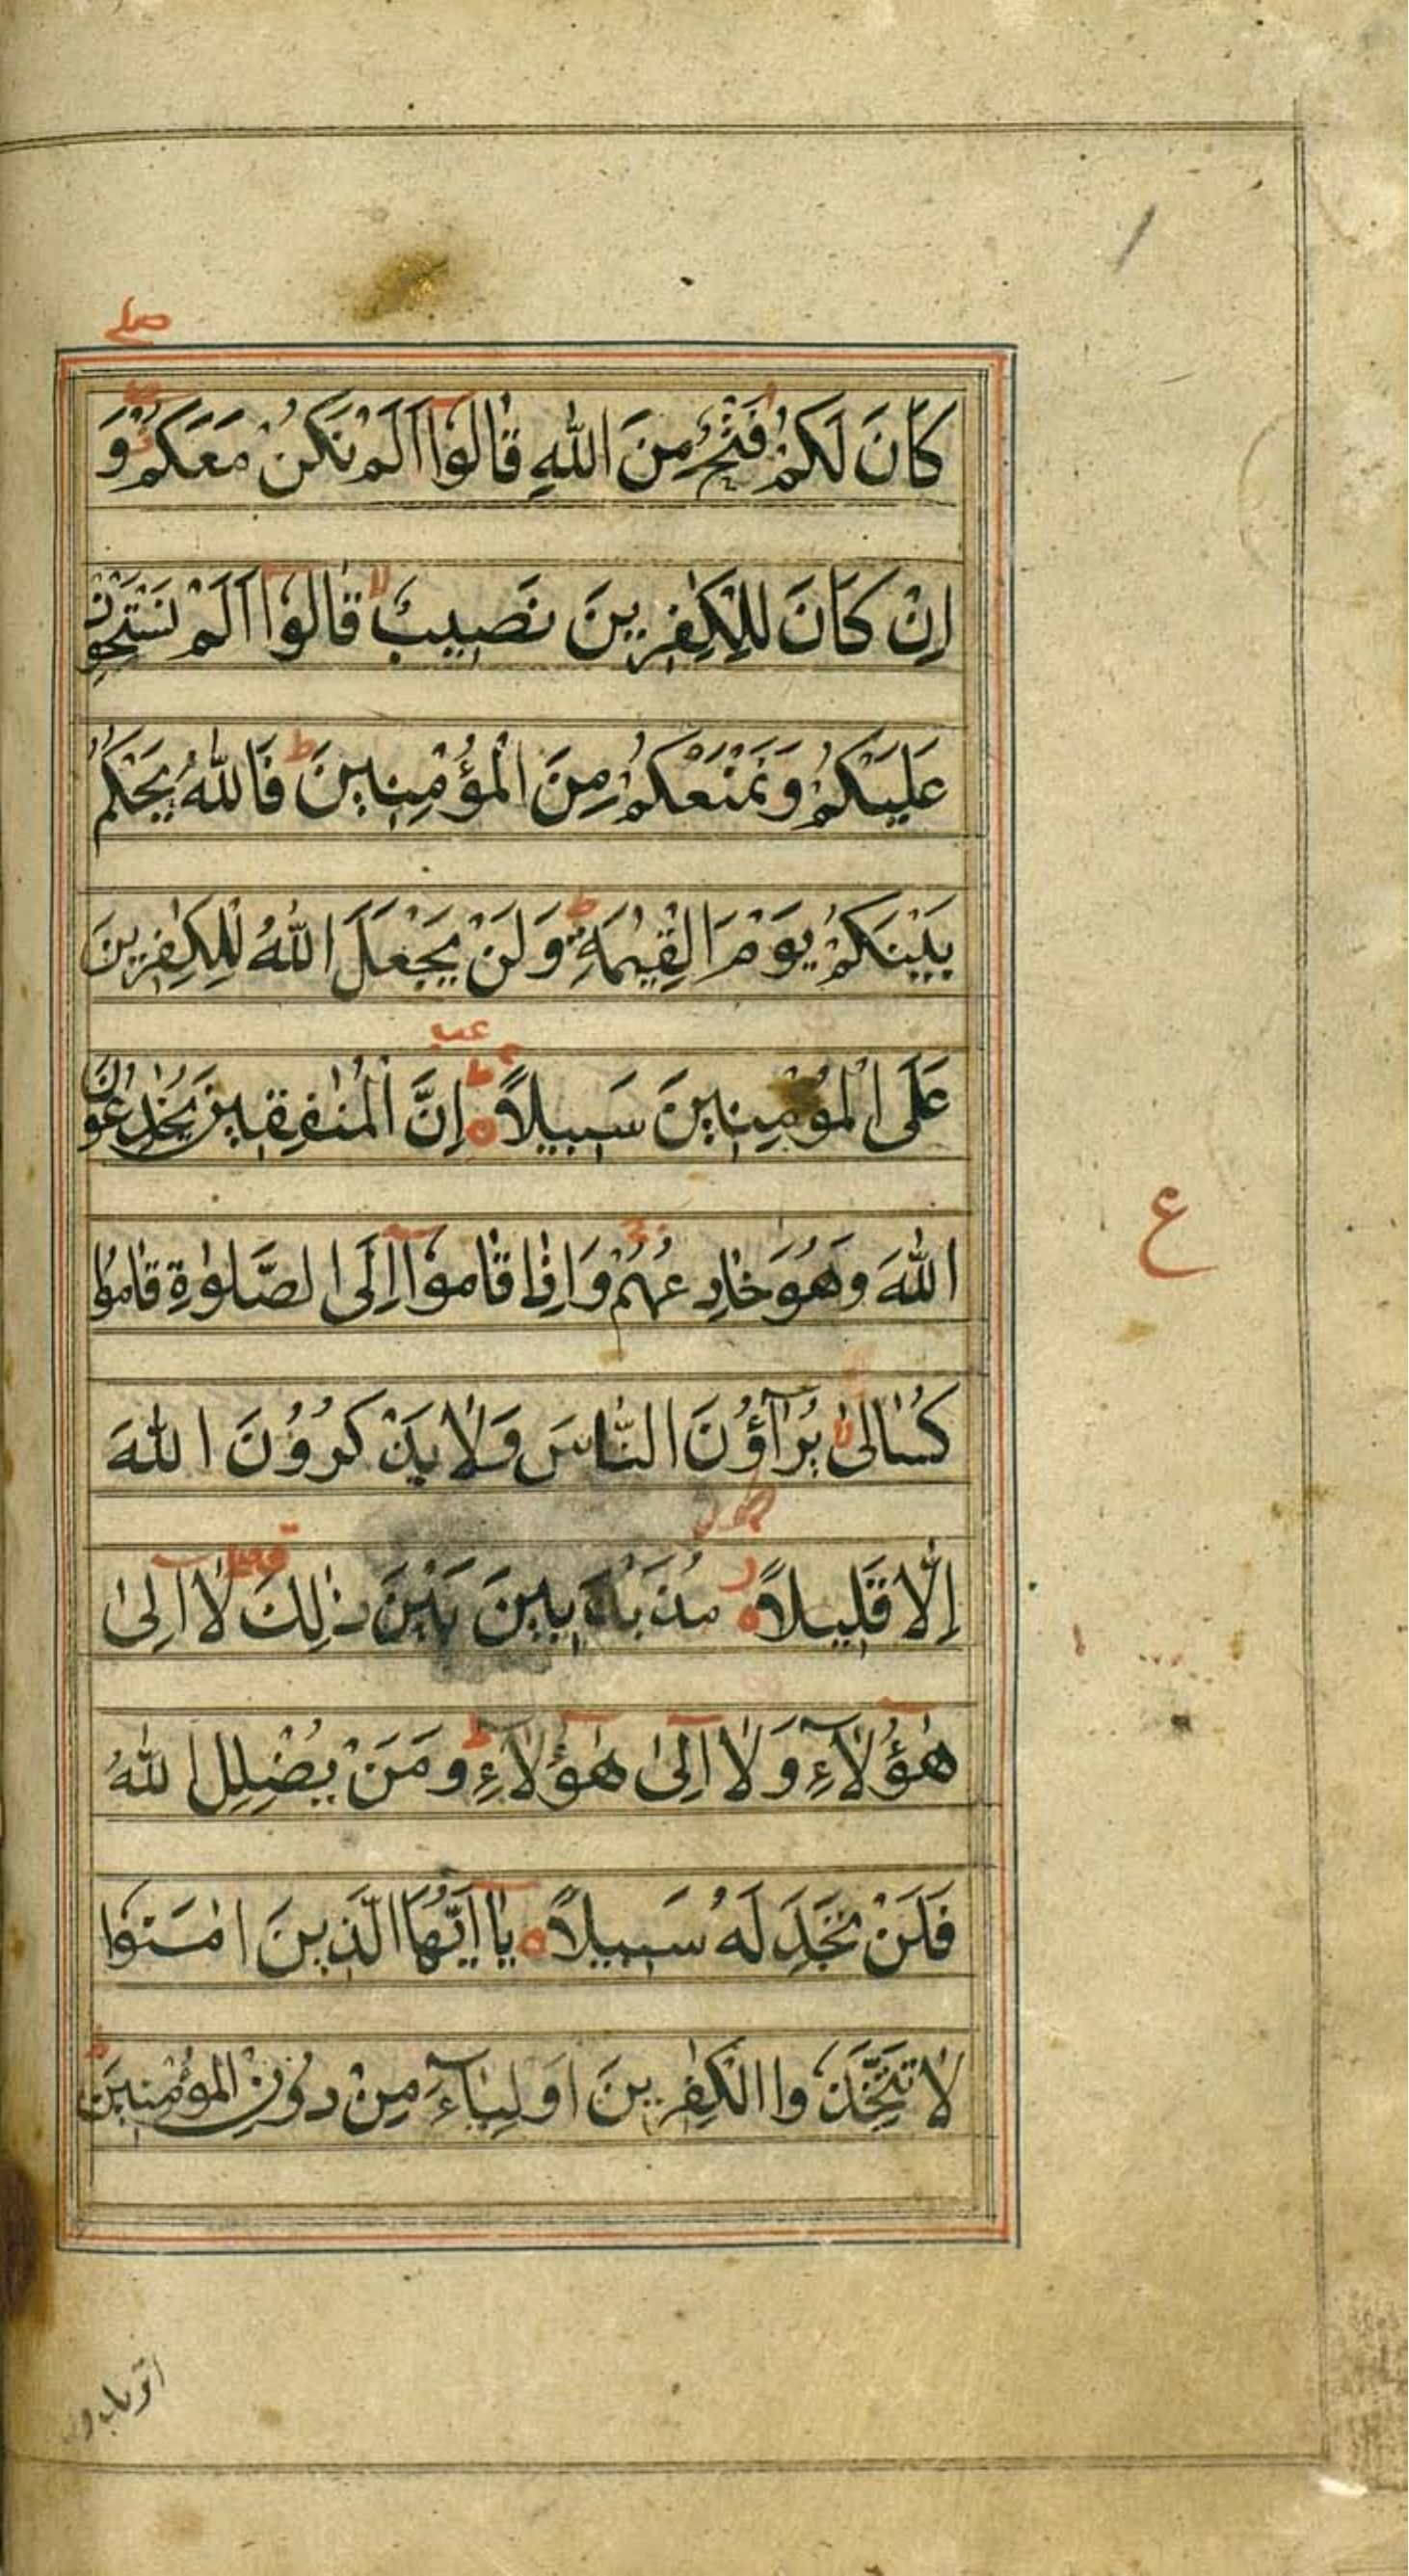 صلے
كَانَ لَكُمْ فَتْحٌ مِنَ اللّٰهِ قَالُوْا اَلَمْ نَكُنْ مَعَكُمْ وَ
اِنْ كَانَ لِلْكٰفِرِينَ نَصِيبٌ قَالُوْا اَلَمْ نَسْتَحْوِذْ
عَلَيْكُمْ وَنَمْنَعْكُمْ مِنَ الْمُؤْمِنِينَ ط فَاللّٰهُ يَحْكُمُ
بَيْنَكُمْ يَوْمَ الْقِيٰمَةِ ط وَلَنْ يَجْعَلَ اللّٰهُ لِلْكٰفِرِينَ
عَلَى الْمُؤْمِنِينَ سَبِيلًا ه اِنَّ الْمُنٰفِقِينَ يُخٰدِعُونَ
ع
اللّٰهَ وَهُوَ خَادِعُهُمْ وَاِذَا قَامُوْا اِلَى الصَّلٰوةِ قَامُوا
كُسَالٰى لا يُرَآؤُنَ النَّاسَ وَلَا يَذْكُرُوْنَ اللّٰهَ
اِلَّا قَلِيلًا ه مُذَبْذَبِينَ بَيْنَ ذٰلِكَ لَا اِلٰى
هٰؤُلَآءِ وَلَا اِلٰى هٰؤُلَآءِ ط وَمَنْ يُضْلِلِ اللّٰهُ
فَلَنْ تَجِدَ لَهُ سَبِيلًا ه يَا اَيُّهَا الَّذِينَ اٰمَنُوا
لَا تَتَّخِذُوا الْكٰفِرِينَ اَوْلِيَآءَ مِنْ دُوْنِ الْمُؤْمِنِينَ ط